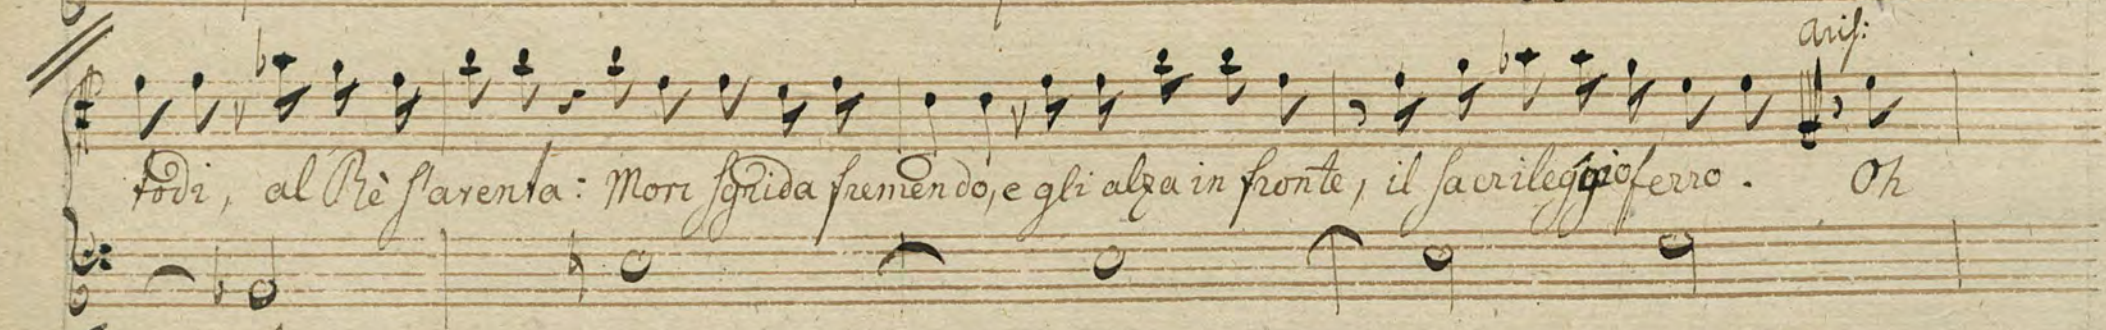 Aris:
todi, al Rè s'aventa: Mori sgrida fremendo, e gli alza in fronte, il sacrileggio ferro. Oh